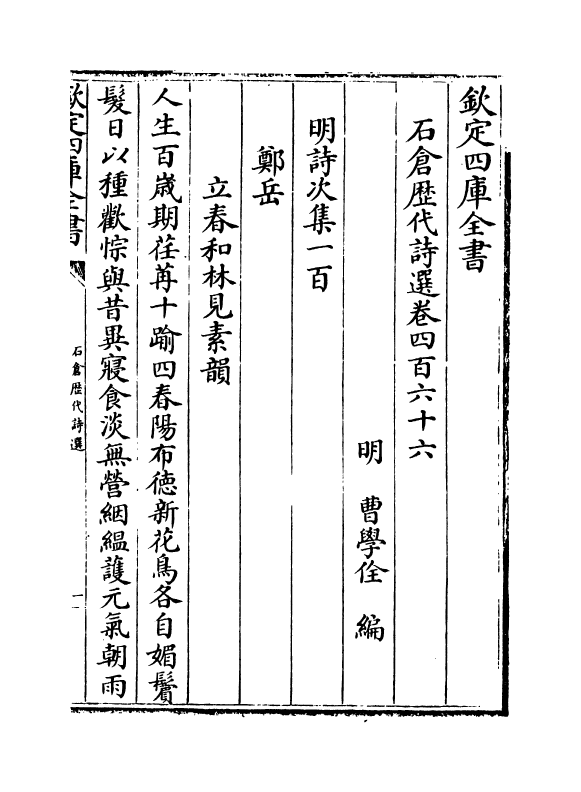 欽定四庫全書
石倉歴代詩選卷四百六十六
明　曹學佺　編
明詩次集一百
鄭岳
立春和林見素韻
人生百歳期荏苒十踰四春陽布徳新花鳥各自媚鬢
髮日以種歡悰與昔異寢食淡無營絪緼䕶元氣朝雨
欽定四庫全書
石倉歴代詩選
一